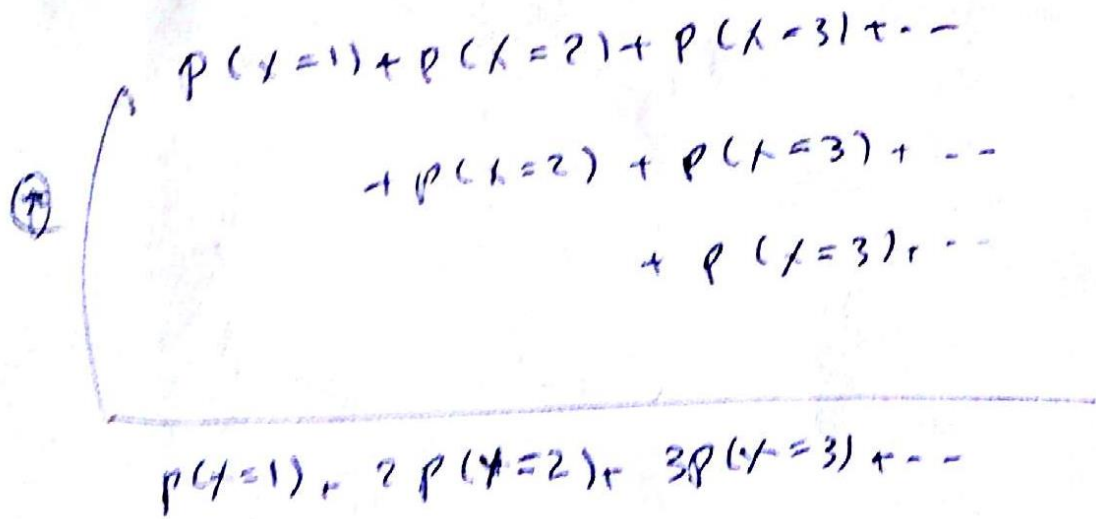 P(X=1) + P(X=2) + P(X=3) + --
+ P(X=2) + P(X=3) + --
+ P(X=3) + --
P(X=1) + 2P(X=2) + 3P(X=3) + --